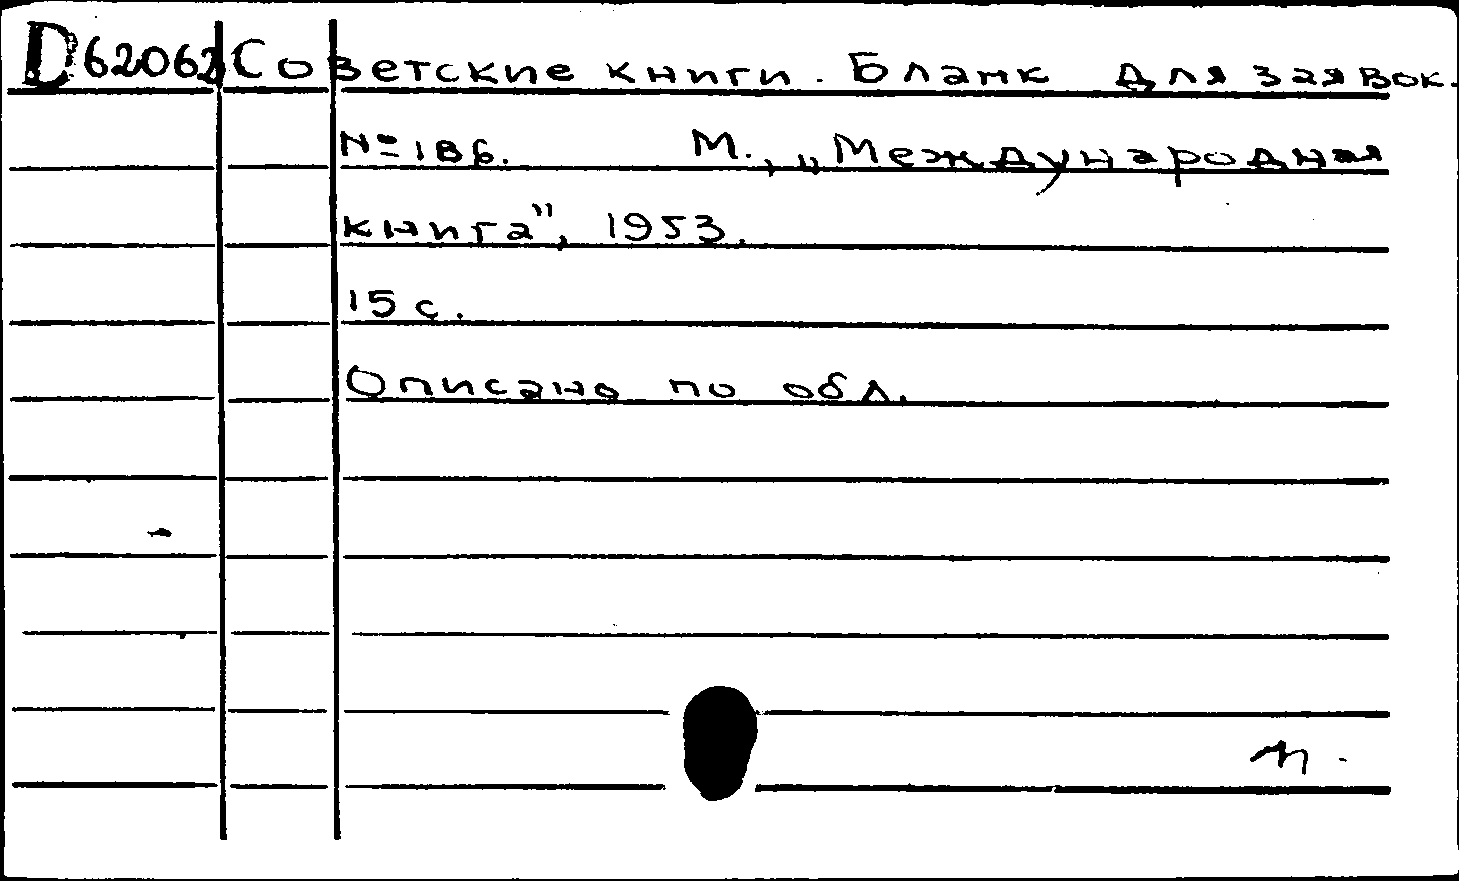 D62062 Советские книги. Бланк для заявок.
№ 186. М., „Международная
книга", 1953.
15 с.
Описано по обл.
п.